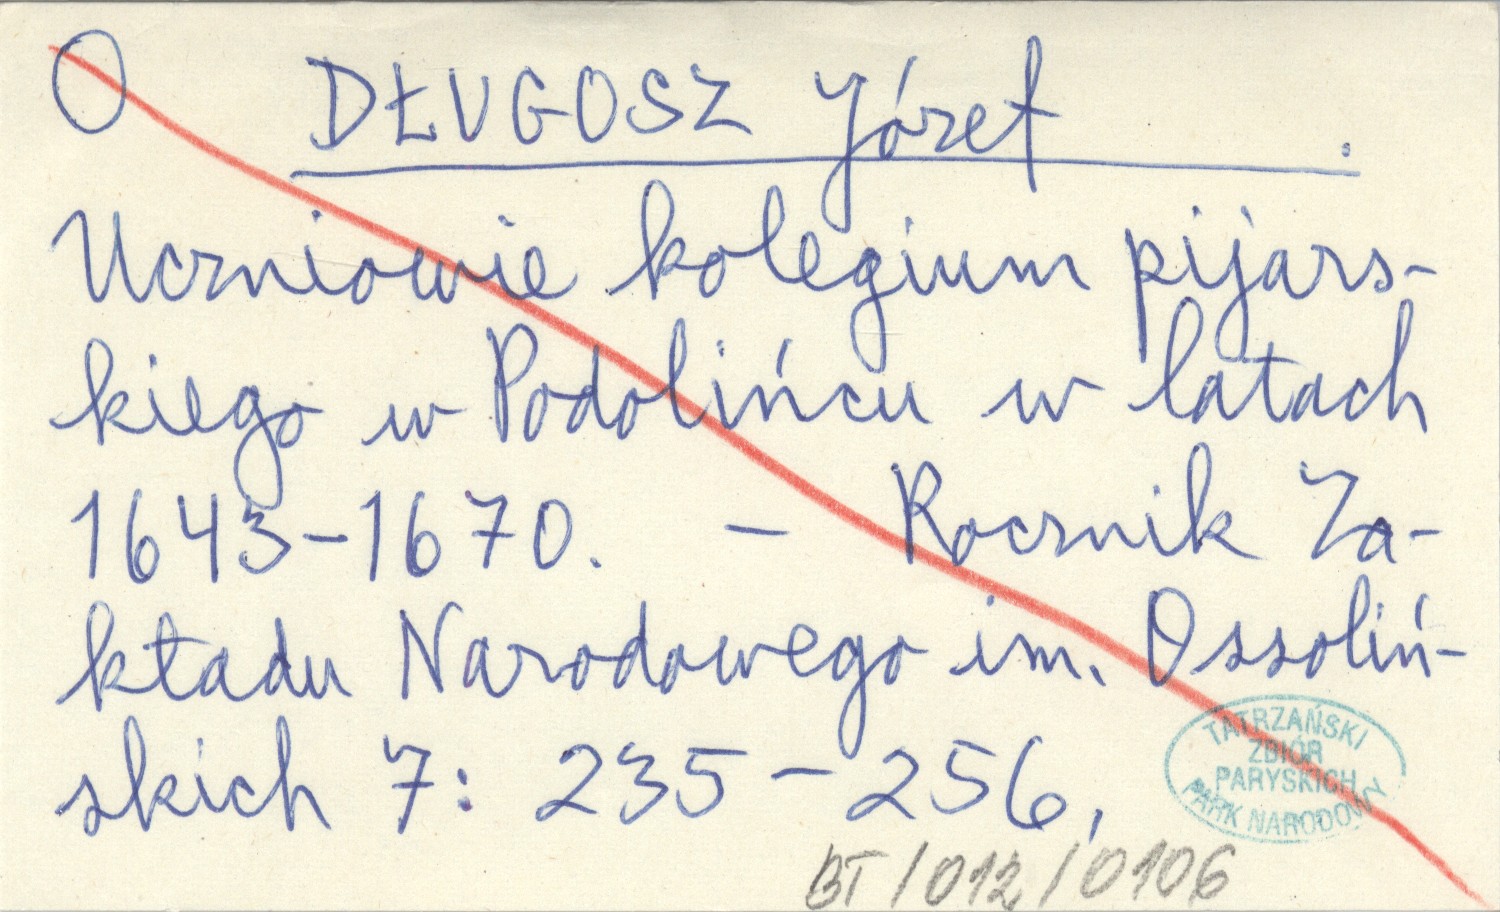 O DŁUGOSZ Józef .
Uczniowie kolegium pijars-
kiego w Podolińcu w latach
1643-1670. - Rocznik Za-
kładu Narodowego im. Ossoliń-
skich 7: 235-256,
TATRZAŃSKI
ZBIÓR
PARYSKICH
PARK NARODOWY
BT/012/0106